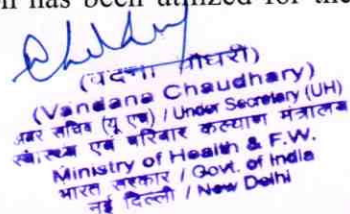 on has been utilized for the
(वंदना चौधरी)
(Vandana Chaudhary)
अवर सचिव (यू एच) / Under Secretary (UH)
स्वास्थ्य एवं परिवार कल्याण मंत्रालय
Ministry of Health & F.W.
भारत सरकार / Govt. of India
नई दिल्ली / New Delhi